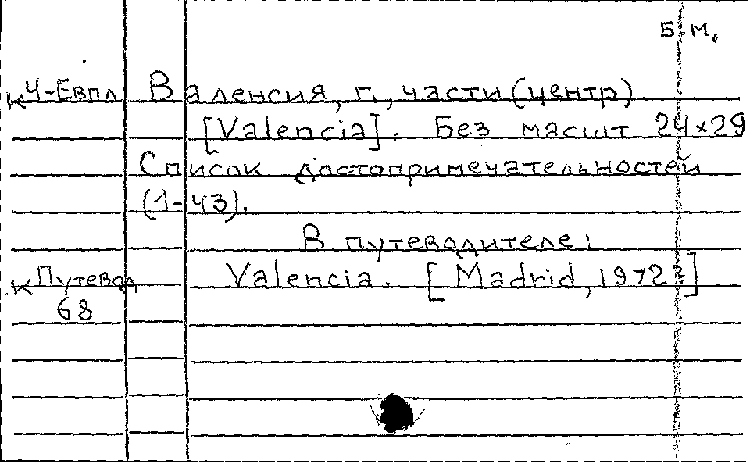 Б.М.
К4-Евпл Валенсия, г., части (центр)
[Valencia]. Без масшт 24×29
Список достопримечательностей
(1-43).
В путеводителе:
К Путевод Valencia. [Madrid, 1972?]
68